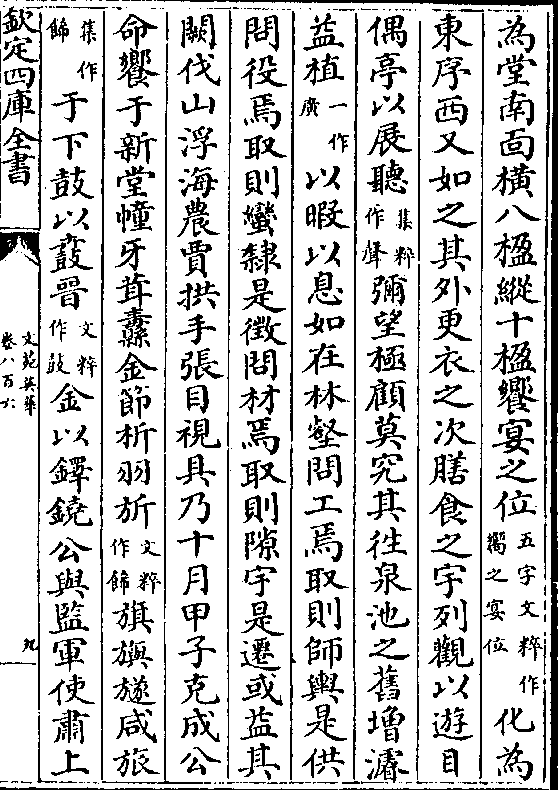 為堂南面橫八楹縱十楹饗宴之位五字文粹作嚮之宴位化為
東序西又如之其外更衣之次膳食之宇列觀以遊目
偶亭以展聽集粹作聲彌望極顧莫究其徃泉池之舊增濬
益植一作廣以暇以息如在林壑問工焉取則師輿是供
問役焉取則蠻隸是徵問材焉取則隙宇是遷或益其
闕伐山浮海農賈拱手張目視具乃十月甲子克成公
命饗于新堂幢牙茸纛金節析羽旂文粹作飾旗旟旞咸旅
集作飾于下鼓以鼖晉文粹作鼓金以鐸鐃公與監軍使肅上
欽定四庫全書
文苑英華
卷八百六
九